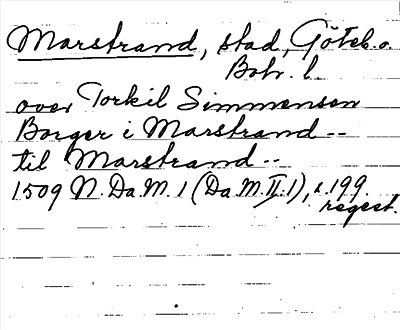 Marstrand, stad, Göteb. o.
Boh. l.
over Torkil Simmensen
Borger i Marstrand --
til Marstrand --
1509 N. Da. M. 1 (Da M. II. 1), s. 199.
regest.